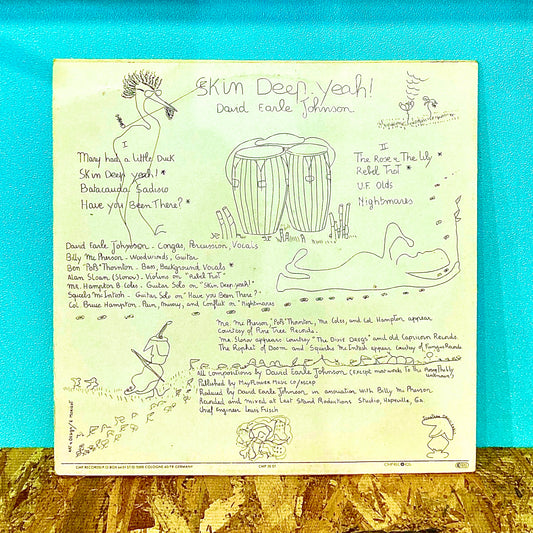 Skin Deep. Yeah!
David Earle Johnson
I
Mary had a Little Duck
Skin Deep yeah! *
Batacauda Sadisio
Have you Been There? *
II
The Rose & The Lily
Rebel Trot *
U.F. Olds
Nightmares
David Earle Johnson - Congas, Percussion, Vocals
Billy Mc Pherson - Woodwinds, Guitar
Ben "Pops" Thornton - Bass, Background Vocals *
Alan Sloan (Slonov) - Violins on "Rebel Trot"
Mr. Hampton B. Coles - Guitar Solo on "Skin Deep. yeah!"
Squeels McIntosh - Guitar Solo on "Have you Been There?"
Col. Bruce Hampton - Pain, Misery, and Conflict on "Nightmares
Mr. Mc Pherson, "Pops" Thornton, Mr. Coles, and Col. Hampton appear
Courtesy of Pine Tree Records.
Mr. Slonov appears courtesy "The Dixie Dregs" and old Capricorn Records.
The Prophet of Doom and Squeels McIntosh appear courtesy of
All Compositions by David Earle Johnson (except
Published by MayFlower Music Co/ASCAP
Produced by David Earle Johnson, in association with Billy Mc Pherson
Recorded and mixed at Last Stand Productions Studio, Hapeville, Ga.
Chief Engineer Louis Frisch
CMP RECORDS
CMP 10 ST